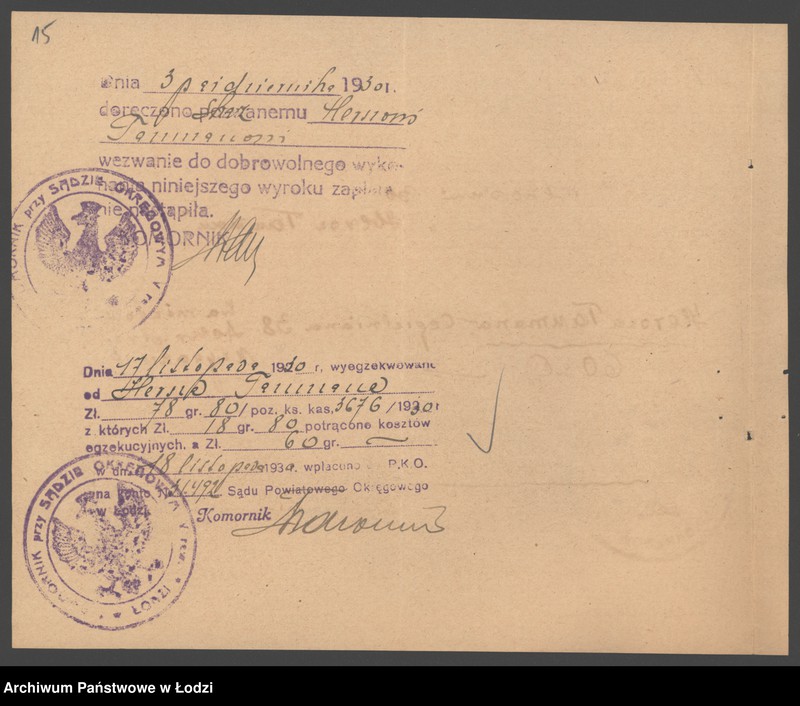 15
Dnia 3 października 1930 r.
doręczono pozwanemu Hersowi
Taumanowi
wezwanie do dobrowolnego wyko-
nania niniejszego wyroku zapłata
nie nastąpiła.
KOMORNIK
KOMORNIK przy SĄDZIE OKRĘGOWYM V rew.
Dnia 17 listopada 1930 r, wyegzekwowano
od Hersza Taumana
Zł. 78 gr. 80/ poz. ks. kas. 3676/1930 r
z których Zł. 18 gr. 80 potrącono kosztów
egzekucyjnych, a Zł. 60 gr. —
w dniu 18 listopada 1930. wpłacono do P.K.O.
na konto Sądu Powiatowego Okręgowego
w Łodzi Komornik
KOMORNIK przy SĄDZIE OKRĘGOWYM V rew. * ŁODZI *
Hersza Taumana Cegielniana 38
Archiwum Państwowe w Łodzi